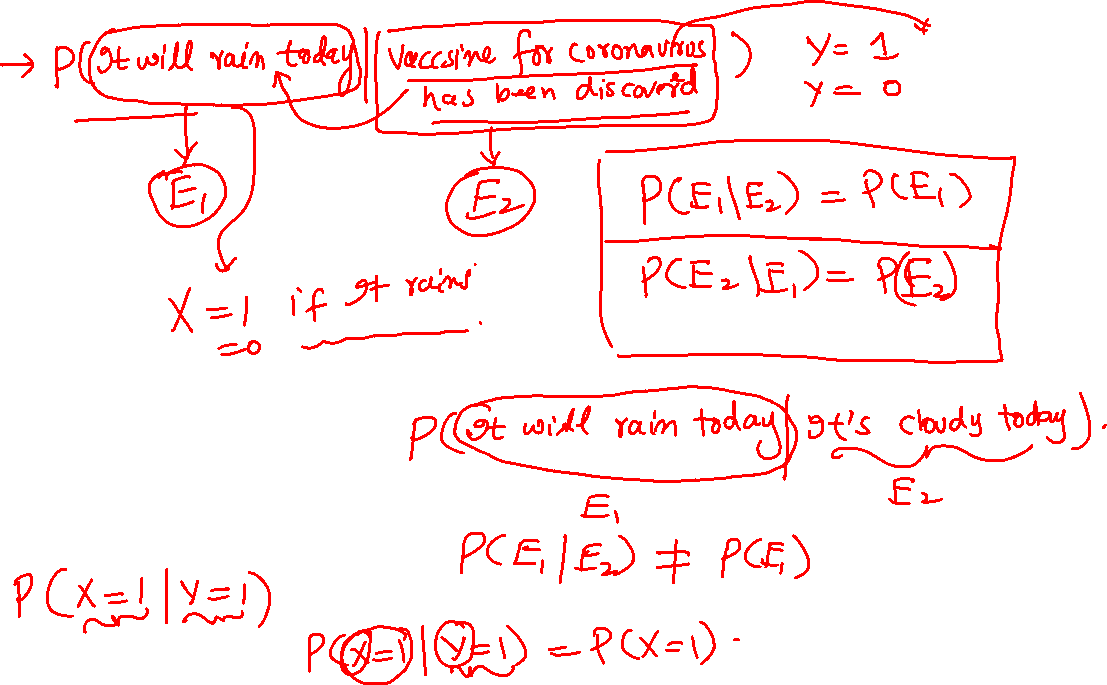 → P(It will rain today | Vaccsine for coronavirus
has been discoverd)
Y = 1
Y = 0
E₁
E₂
P(E₁|E₂) = P(E₁)
P(E₂|E₁) = P(E₂)
X = 1 if It rains.
= 0
P(It will rain today | It's cloudy today).
E₁
E₂
P(E₁|E₂) ≠ P(E₁)
P(X=1 | Y=1)
P(X=1 | Y=1) = P(X=1).